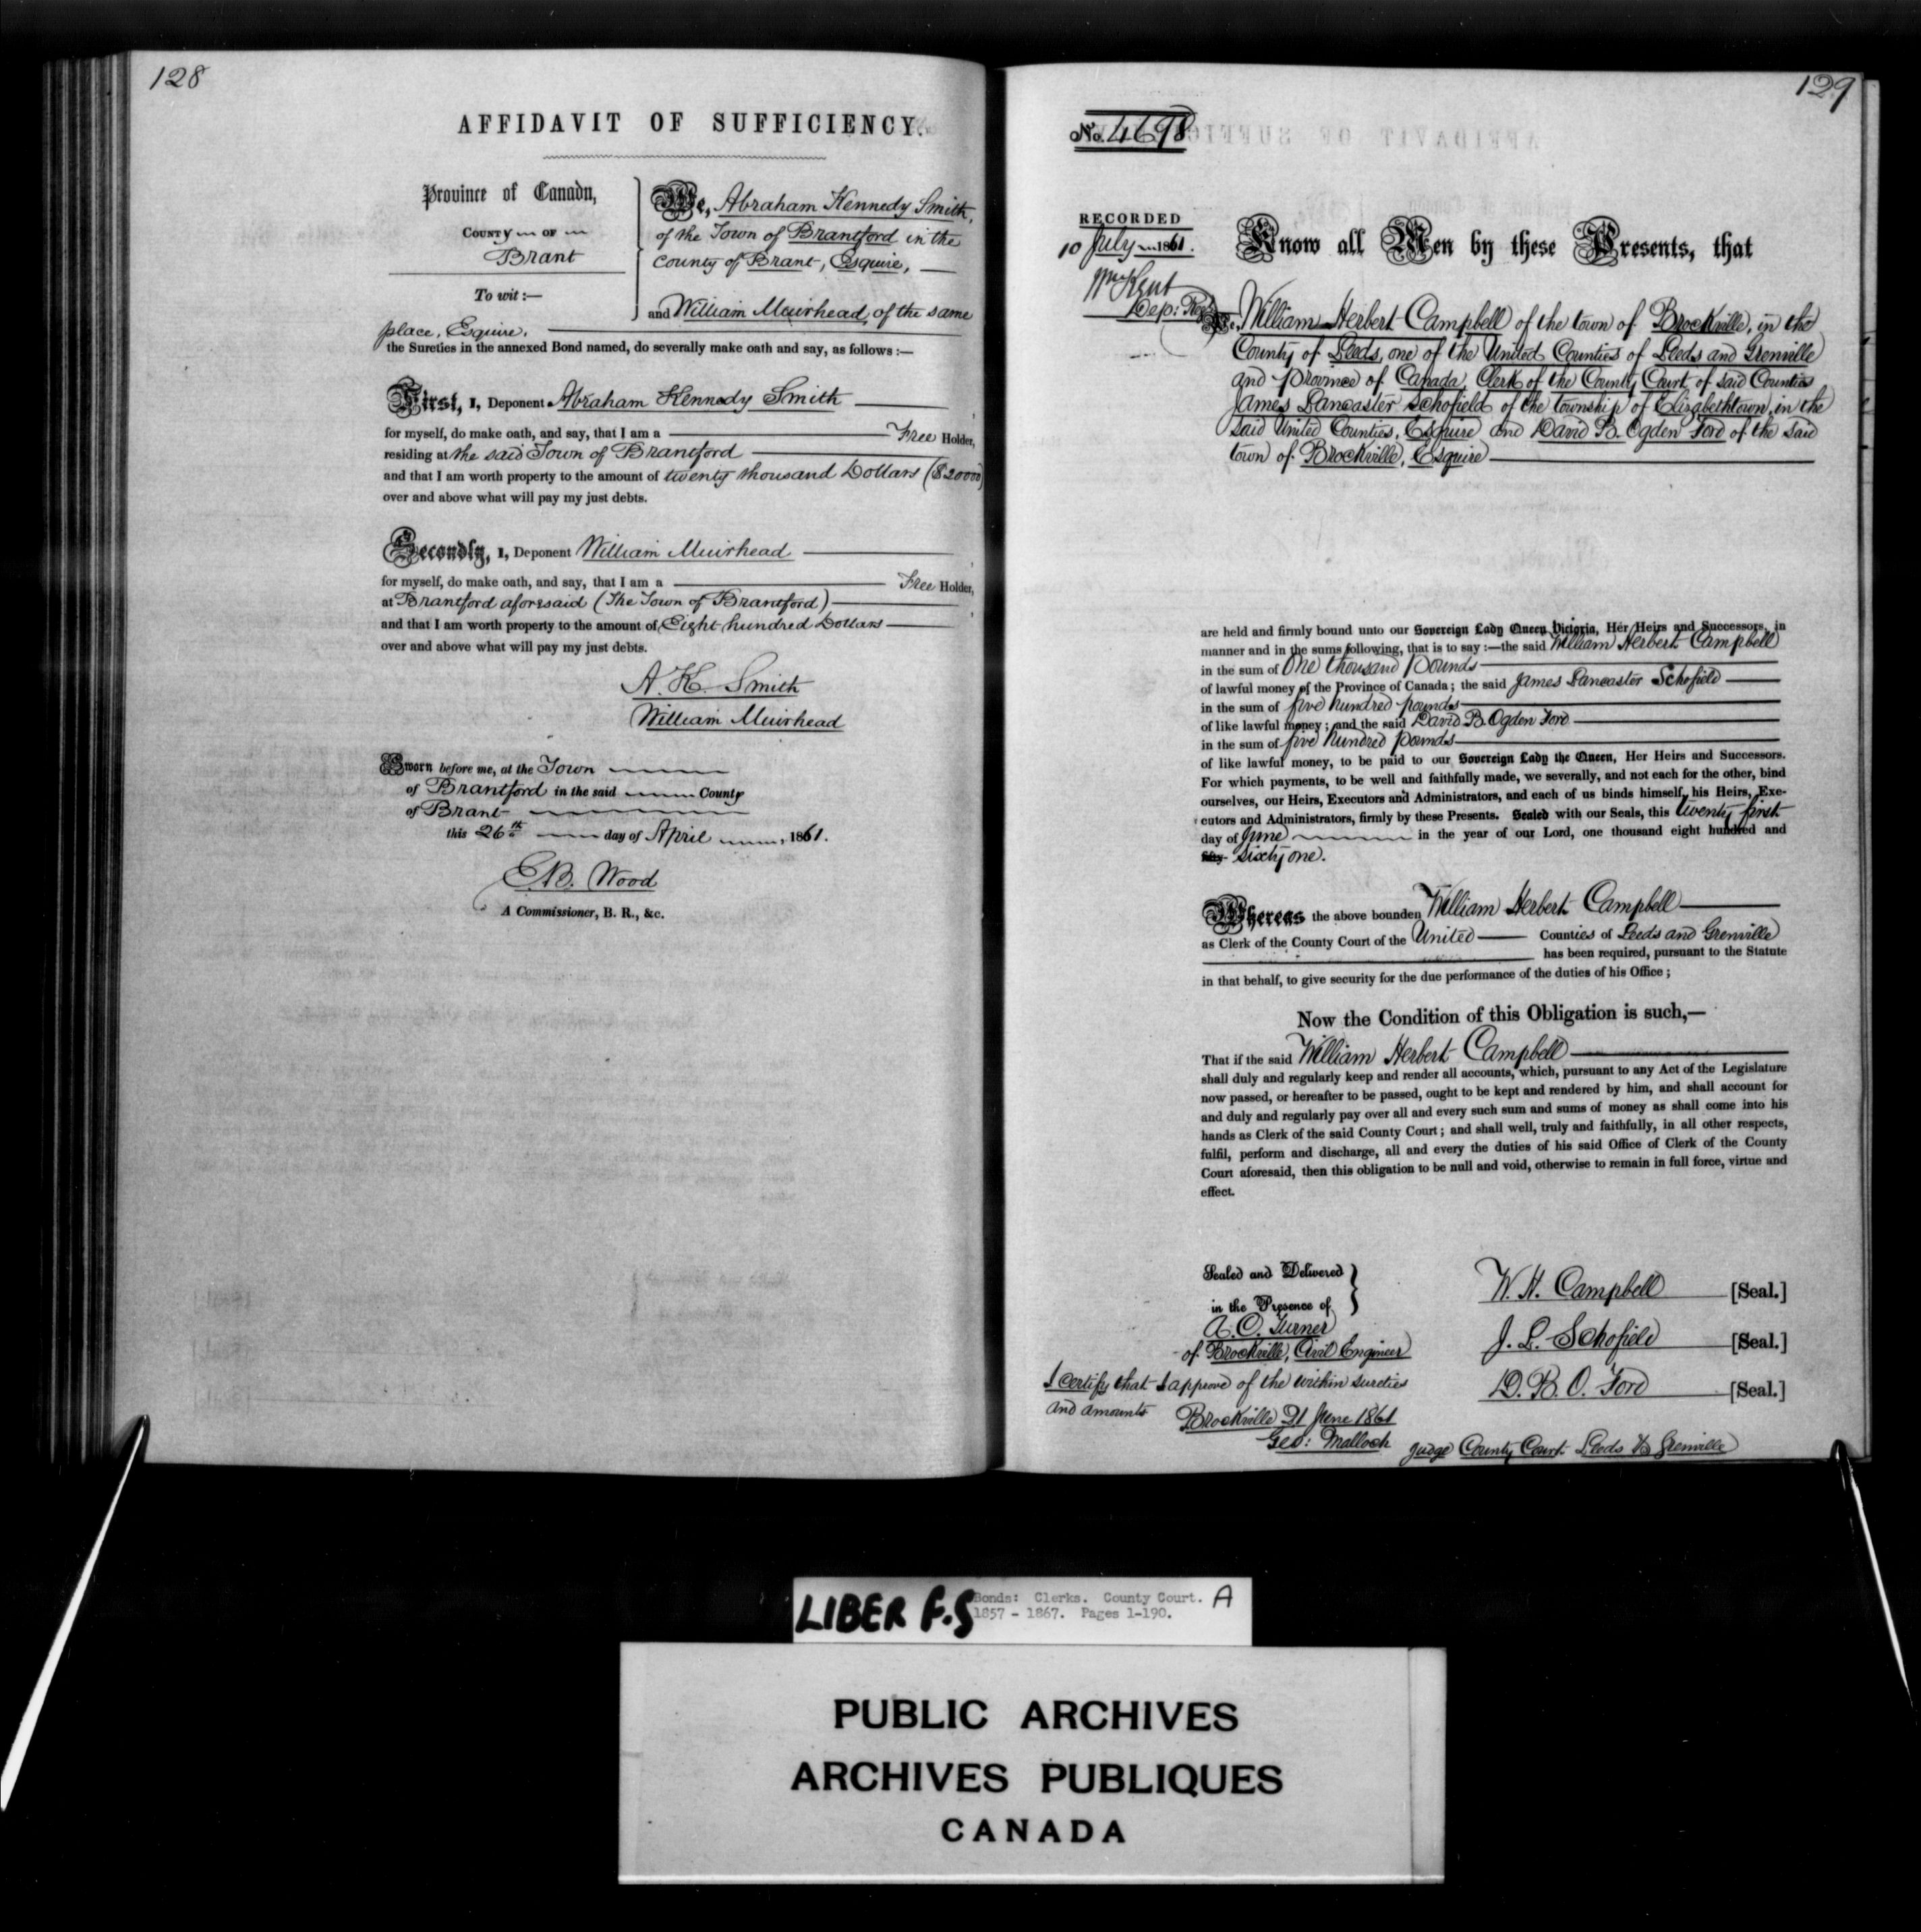 128
AFFIDAVIT OF SUFFICIENCY.
Province of Canada,
COUNTY OF
Brant
To wit:—
We, Abraham Kennedy Smith,
of the Town of Brantford in the
County of Brant, Esquire,
and William Muirhead of the same
place, Esquire.
the Sureties in the annexed Bond named, do severally make oath and say, as follows:—
First, I, Deponent Abraham Kennedy Smith
for myself, do make oath, and say, that I am a Free Holder,
residing at the said Town of Brantford
and that I am worth property to the amount of twenty thousand Dollars ($20000)
over and above what will pay my just debts.
Secondly, I, Deponent William Muirhead
for myself, do make oath, and say, that I am a Free Holder,
at Brantford aforesaid (The Town of Brantford)
and that I am worth property to the amount of Eight hundred Dollars
over and above what will pay my just debts.
A. K. Smith
William Muirhead
Sworn before me, at the Town
of Brantford in the said County
of Brant
this 26th day of April, 1861.
E. B. Wood
A Commissioner, B. R., &c.
129
No. 4698
RECORDED
10 July 1861.
Wm Kent
Dep: Reg
Know all Men by these Presents, that
We, William Herbert Campbell of the town of Brockville, in the
County of Leeds, one of the United Counties of Leeds and Grenville
and Province of Canada, Clerk of the County Court of said Counties
James Lancaster Schofield of the township of Elizabethtown, in the
said United Counties, Esquire and David B. Ogden Ford of the said
town of Brockville, Esquire
are held and firmly bound unto our Sovereign Lady Queen Victoria, Her Heirs and Successors, in
manner and in the sums following, that is to say:—the said William Herbert Campbell
in the sum of One thousand pounds
of lawful money of the Province of Canada; the said James Lancaster Schofield
in the sum of five hundred pounds
of like lawful money; and the said David B. Ogden Ford
in the sum of five hundred pounds
of like lawful money, to be paid to our Sovereign Lady the Queen, Her Heirs and Successors.
For which payments, to be well and faithfully made, we severally, and not each for the other, bind
ourselves, our Heirs, Executors and Administrators, and each of us binds himself, his Heirs, Exe-
cutors and Administrators, firmly by these Presents. Sealed with our Seals, this twenty first
day of June in the year of our Lord, one thousand eight hundred and
fifty sixty one.
Whereas the above bounden William Herbert Campbell
as Clerk of the County Court of the United Counties of Leeds and Grenville
has been required, pursuant to the Statute
in that behalf, to give security for the due performance of the duties of his Office;
Now the Condition of this Obligation is such,—
That if the said William Herbert Campbell
shall duly and regularly keep and render all accounts, which, pursuant to any Act of the Legislature
now passed, or hereafter to be passed, ought to be kept and rendered by him, and shall account for
and duly and regularly pay over all and every such sum and sums of money as shall come into his
hands as Clerk of the said County Court; and shall well, truly and faithfully, in all other respects,
fulfil, perform and discharge, all and every the duties of his said Office of Clerk of the County
Court aforesaid, then this obligation to be null and void, otherwise to remain in full force, virtue and
effect.
Sealed and Delivered
in the Presence of
A. O. Turner
of Brockville, Civil Engineer
W. H. Campbell [Seal.]
J. L. Schofield [Seal.]
D. B. O. Ford [Seal.]
I certify that I approve of the within sureties
and amounts
Brockville 21 June 1861
Geo: Malloch Judge County Court Leeds & Grenville
LIBER F.S
Bonds: Clerks. County Court. A
1857 - 1867. Pages 1-190.
PUBLIC ARCHIVES
ARCHIVES PUBLIQUES
CANADA